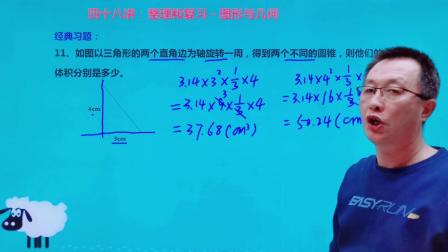 四十八讲：整理和复习-图形与几何
经典习题：
11、如图以三角形的两个直角边为轴旋转一周，得到两个不同的圆锥，则他们的
体积分别是多少。
4cm
3cm
3.14×3²×1/3×4
=3.14×9×1/3×4
=37.68(cm³)
3.14×4²×1/3×
=3.14×16×1/3
=50.24(cm
EASYRUN